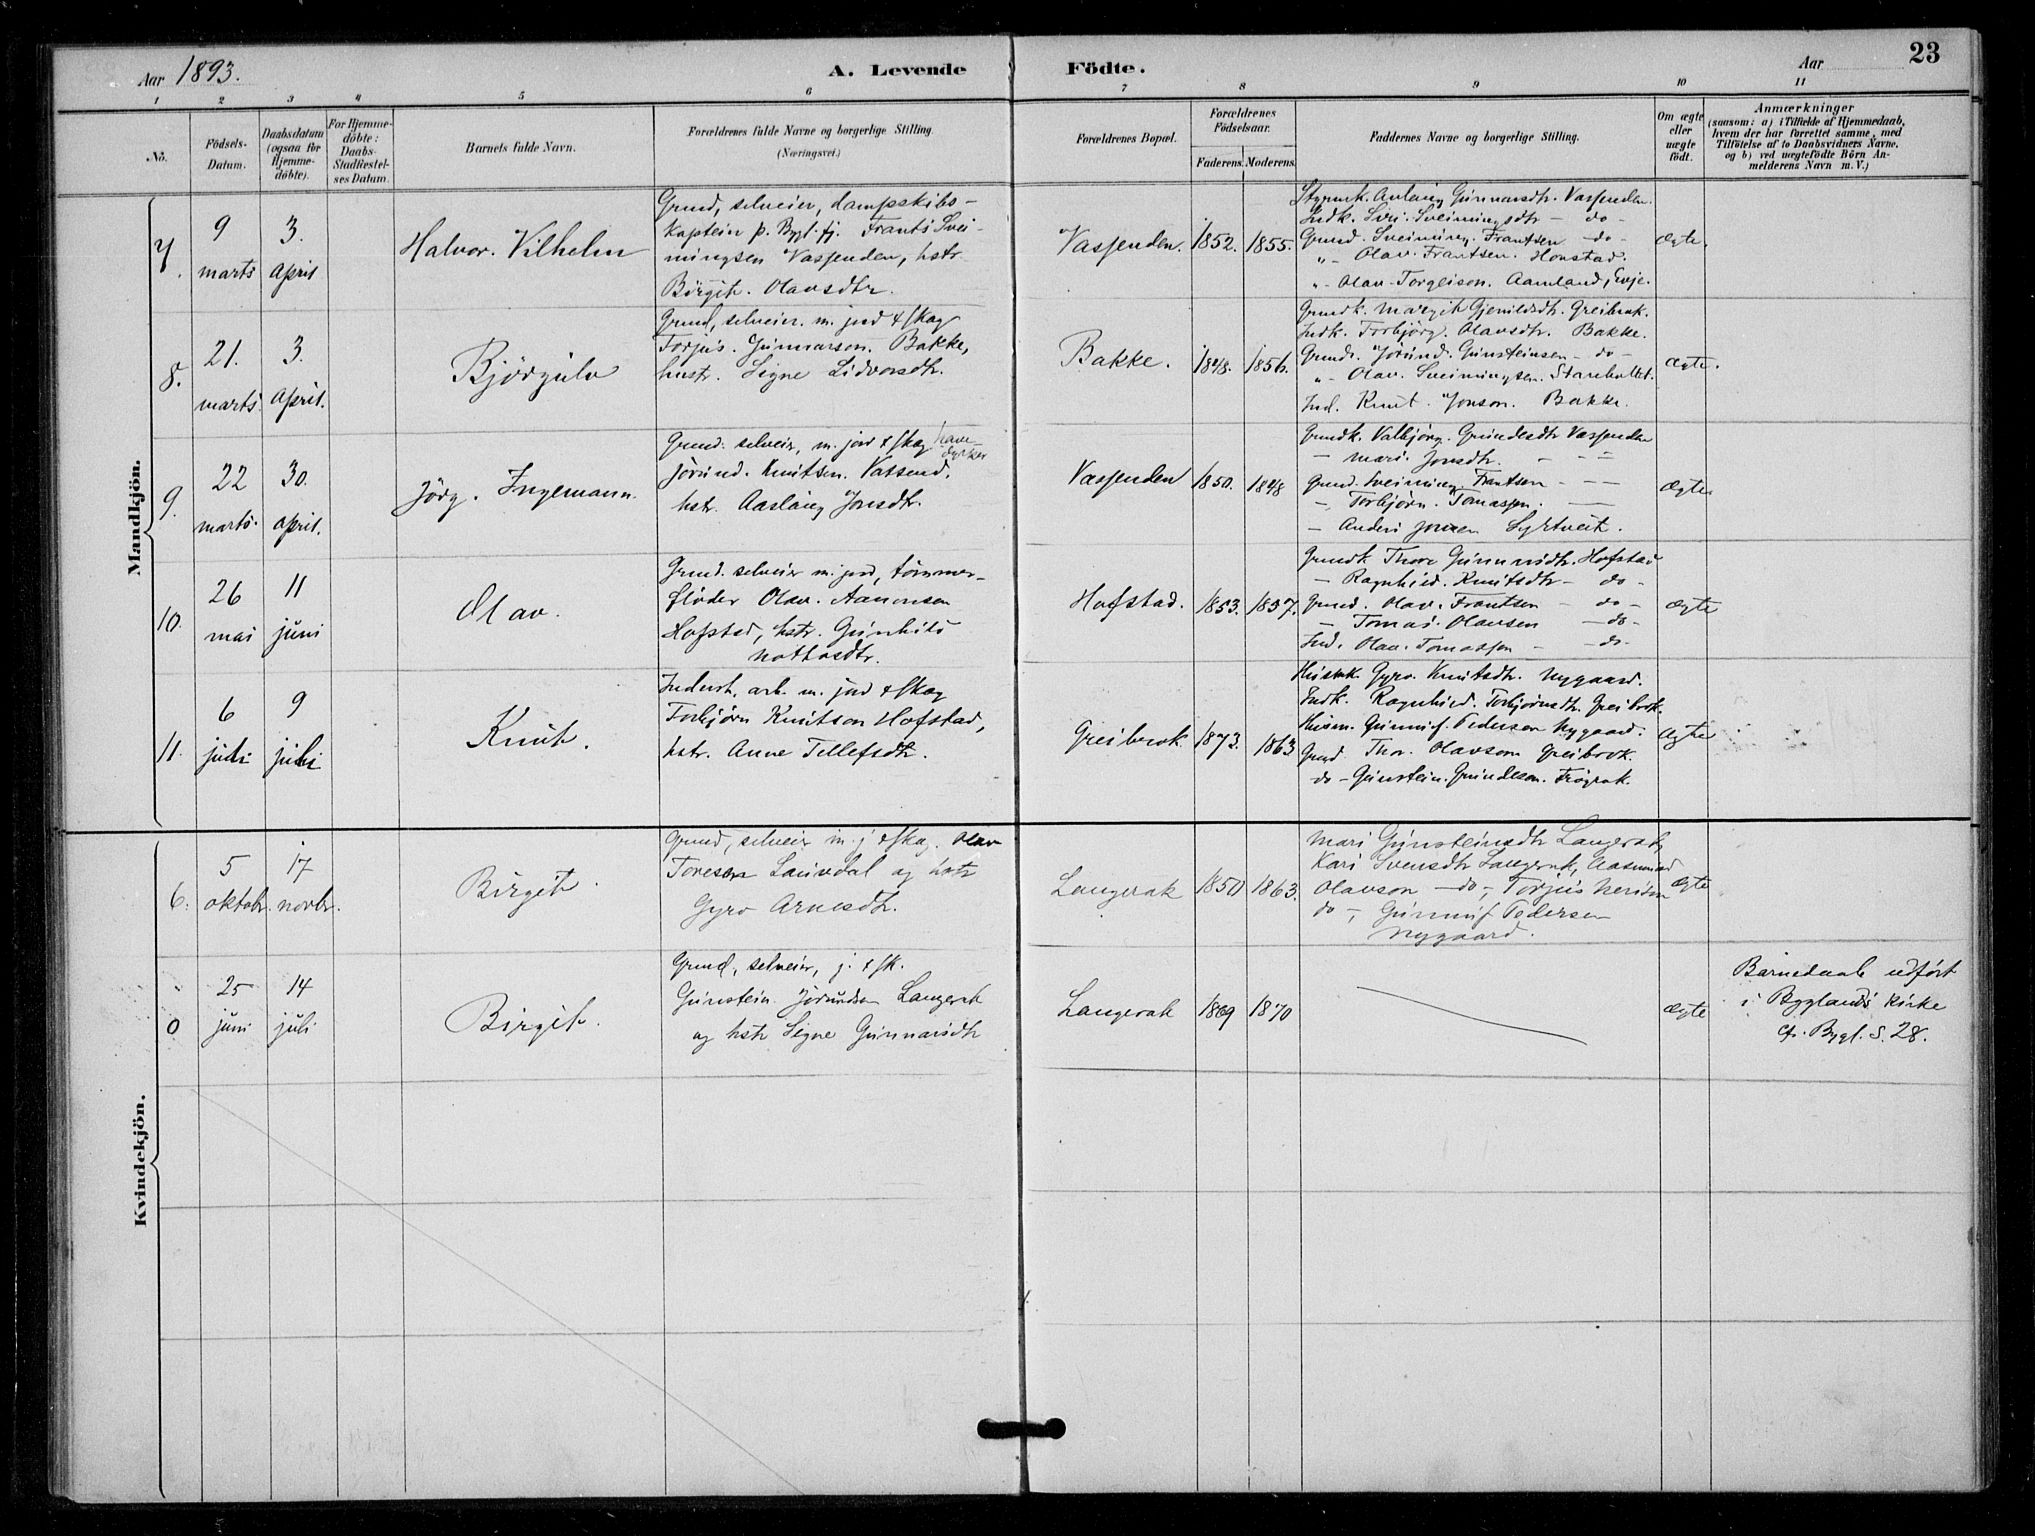 Aar 1893.
A. Levende Födte.
Aar
23
1 2 3 4 5 6 7 8 9 10 11
No.
Födsels-Datum.
Daabsdatum (ogsaa for Hjemme-döbte).
For Hjemme-döbte: Daabs-Stadfæstel-ses Datum.
Barnets fulde Navn.
Forældrenes fulde Navne og borgerlige Stilling.
(Næringsvei.)
Forældrenes Bopæl.
Forældrenes Födselsaar.
Faderens. Moderens.
Faddernes Navne og borgerlige Stilling.
Om ægte eller uægte födt.
Anmærkninger
(saasom: a) i Tilfælde af Hjemmedaab,
hvem der har forrettet samme, med
Tilföielse af to Daabsvidners Navne.
og b) ved uægtefödte Börn An-
melderens Navn m. V.)
Mandkjön.
7.
9 marts
3. April
Halvor. Vilhelm
Grund, selveier, dampskibs-
kaptein p. Bygl.fj. Frants Svei-
ningsen Vassenden, hstr.
Birgit. Olavsdtr.
Vassenden.
1852. 1855.
Styrmk. Aslaug Gunnarsdtr. Vassenden.
Indk. Siri. Sveiningsdtr - do -
Grund. Sveinung. Frantsen - do -
"- Olav. Frantsen. Honstad.
"- Olav. Torgeison. Aamland, Evje.
ægte.
8.
21. marts.
3. April.
Björgulv
Grund, selveier. m. jord & skog
Torjus. Gunnarson. Bakke,
hustr. Signe Lidvorsdtr.
Bakke.
1848. 1856.
Grundk. Margit Gjerulddtr. Greibrok.
Indk. Torbjörg. Olavsdtr. Bakke.
Grundr. Jörund. Gunsteinsen - do -
"- Olav. Sveiningsen. Stareholtet.
Ind. Knut. Jonson. Bakke.
ægte.
9.
22 marts.
30. april.
Jörg. Ingemann.
Grund. selveier, m. jord & skog have-
dyrker
Jörund. Knutsen. Vatsend.
hstr. Aaslaug Jonsdtr.
Vassenden
1850. 1848
Grundk. Valbjörg. Grundesdtr Vassenden
- Mari. Jonsdtr. - - -
Grund. Sveinung. Frantsen - - -
- Torbjörn. Tomassen. -
- Anders Jonsen Syrtveit.
ægte
10.
26 mai
11 juni
Olav.
Grund. selveier m. jord, tömmer-
flöder Olav. Aanonsen
Hofstad, hstr. Gunhild
Nottosdtr.
Hofstad.
1853. 1857.
Grundk Thore Gunnusdtr. Hofstad
- Ragnhild. Knutsdtr - do -
Grund. Olav. Frantsen - do -
- Tomas. Olavsen - do -
Ind. Olav. Tomassen - do -
ægte
11.
6 juli
9 juli
Knut.
Inderst, arb. m. jord & skog
Torbjörn Knutson Hofstad,
hstr. Anne Tellefsdtr.
Greibrok
1873. 1863
Husmk. Gyro. Knutsdtr. Nygaard.
Indk. Ragnhild. Torbjörnsdtr. Greibrok.
Husm. Gunnuf. Pedersen Nygaard.
Grund. Thor. Olavson Greibrok.
do - Gunstein. Grundeson. Frögrok.
ægte
Kvindekjön.
6.
5 oktobr.
17 novbr.
Birgit.
Grund, selveier m. j & skog. Olav
Toresen Lauvdal og hstr
Gyro Arnesdtr.
Langerak
1850 1863.
Mari Gunsteinsdtr Langerak,
Kari Svensdtr Langerak, Aasmund
Olavson - do -, Torjus
do -, Gunnuf Pedersen
Nygaard.
ægte
0
25 juni
14 juli
Birgit.
Grund, selveier, j. & sk.
Gunstein Jörundsen Langerak
og hstr Signe Gunnarsdtr
Langerak
1869 1870
ægte
Barnedaab udfört
i Byglands Kirke
cfr. Bygl. S. 28.